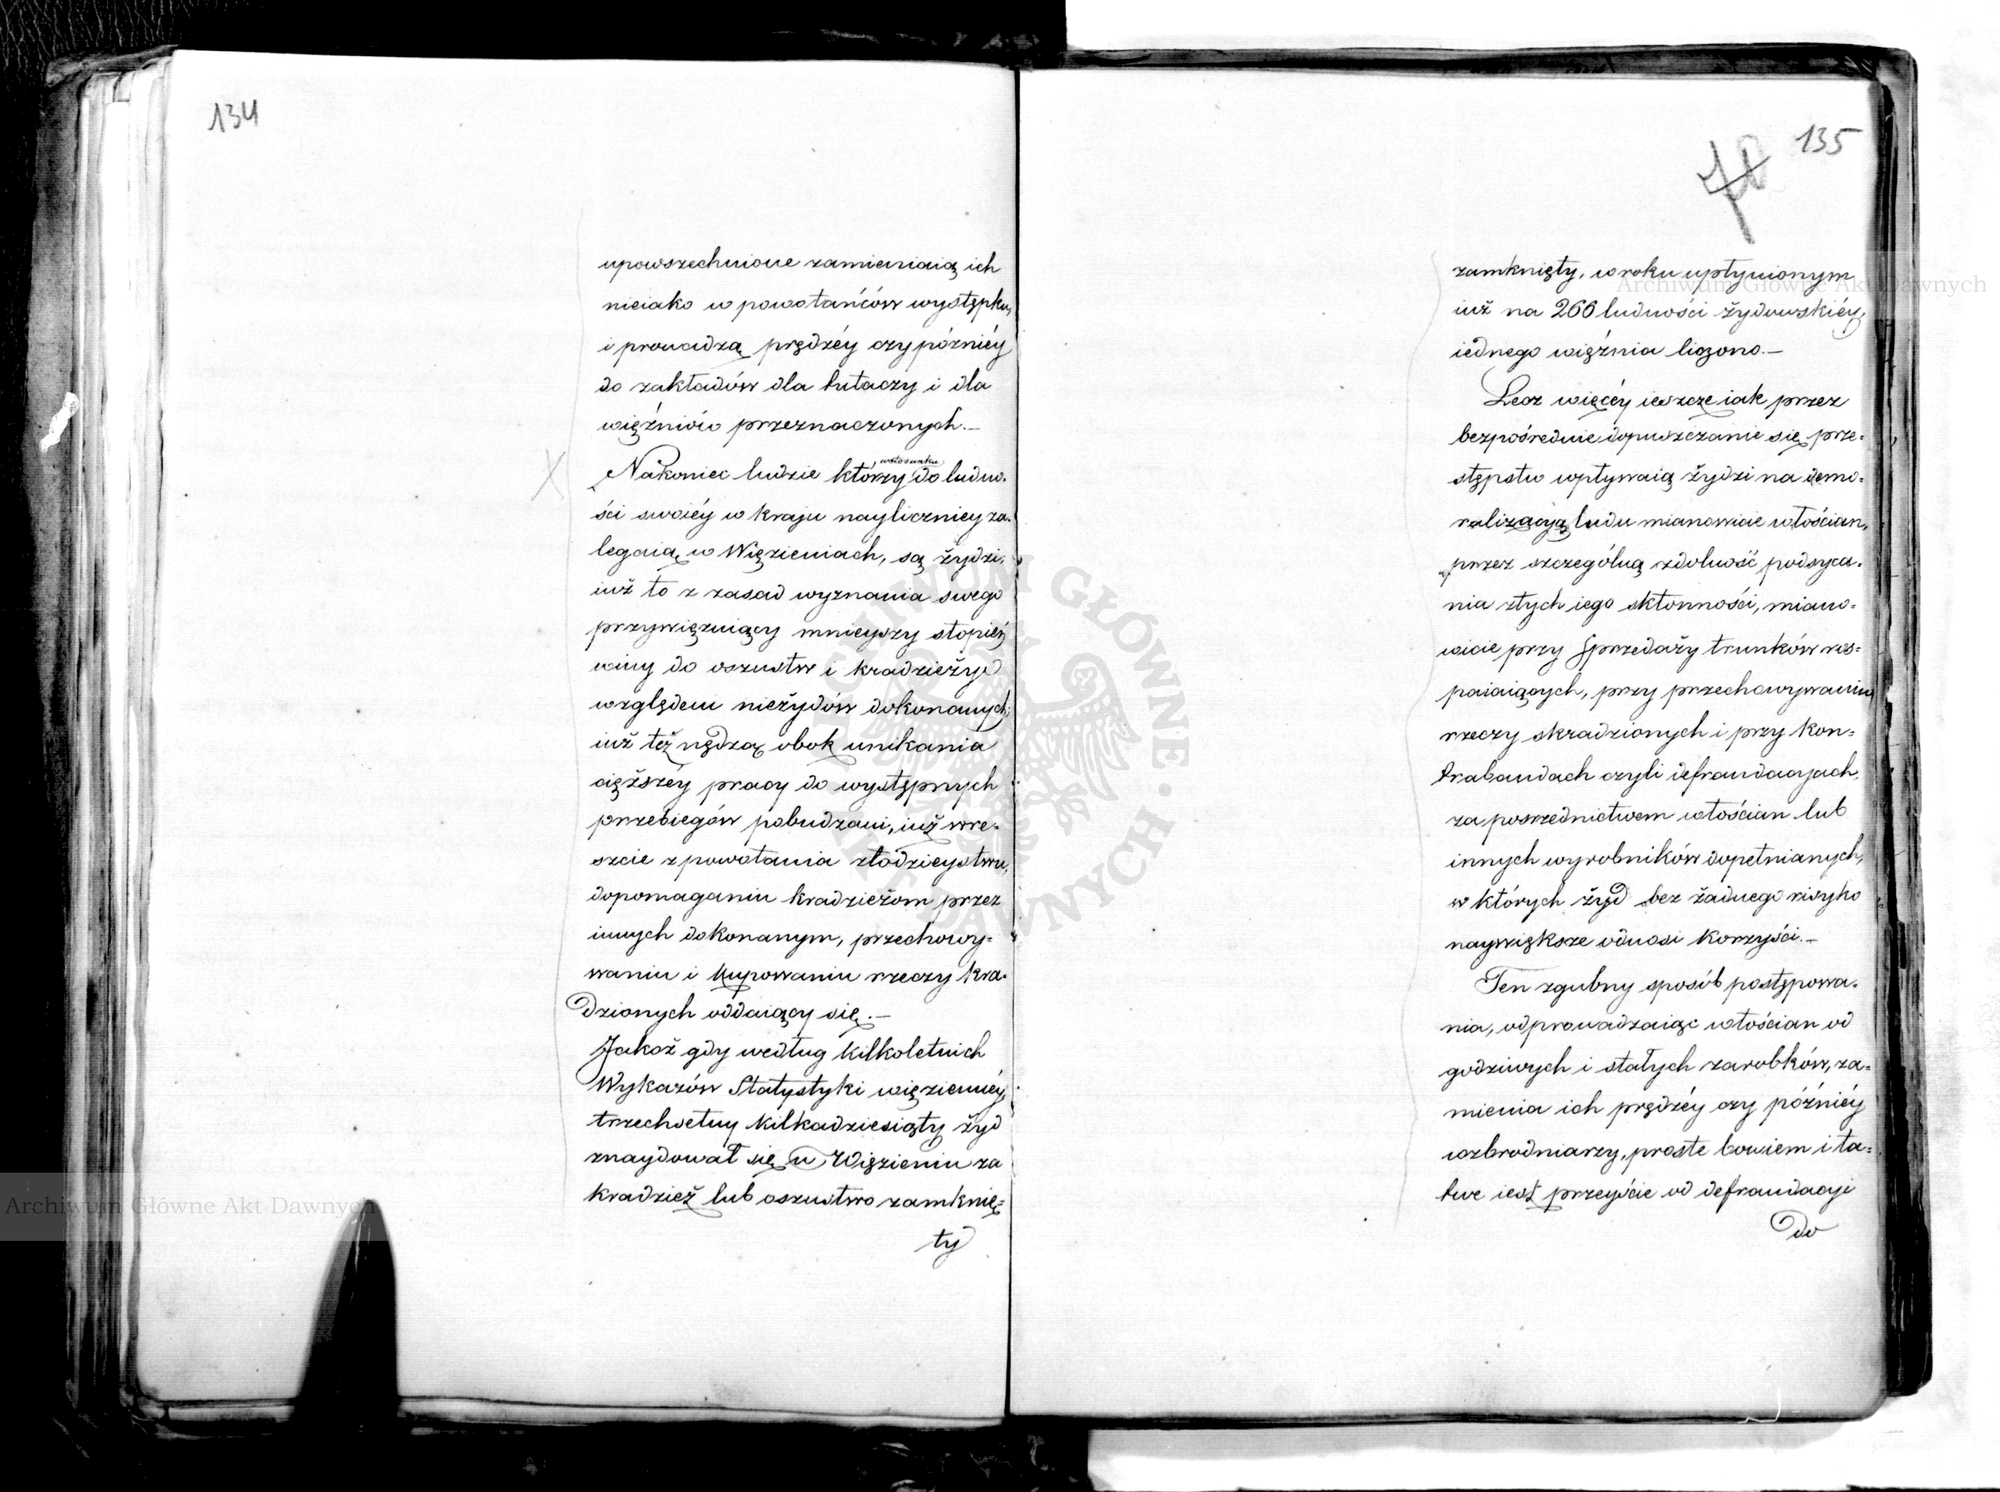 134
upowszechnione zamieniaią ich
nieiako w powołańców występku,
i prowadzą prędzéy czy późniéy
do zakładów dla tułaczy i dla
więźniów przeznaczonych.—
Nakoniec ludzie którzy w stosunku do ludno-
ści swoiéy w kraju nayliczniey za-
legaią w Więzieniach, są żydzi,
iuż to z zasad wyznania swego
przywięzuiący mnieyszy stopień
winy do oszustw i kradzieży
względem nieżydów dokonanych,
iuż też nędzą obok unikania
cięższéy pracy do występnych
przebiegów pobudzani, iuż wre-
szcie z powołania złodzieystwu,
dopomaganiu kradzieżom przez
innych dokonanym, przechowy-
waniu i kupowaniu rzeczy kra-
dzionych oddaiący się.—
Jakoż gdy według kilkoletnich
Wykazów Statystyki więziennéy,
trzechsetny kilkadziesiąty żyd
znaydował się w Więzieniu za
kradzież lub oszustwo zamknię-
ty
135
zamknięty, w roku upłynionym
iuż na 266 ludności żydowskiéy,
iednego więźnia liczono.—
Lecz więcéy ieszcze iak przez
bezpośrednie dopuszczanie się prze-
stępstw wpływaią żydzi na demo-
ralizacyą ludu mianowicie włościan,
przez szczególną zdolność podsyca-
nia złych iego skłonności, miano-
wicie przy sprzedaży trunków ros-
paiaiących, przy przechowywaniu
rzeczy skradzionych i przy kon-
trabandach czyli defraudacyach
za posrednictwem włościan lub
innych wyrobników dopełnianych,
w których żyd bez żadnego risyko
naywiększe odnosi korzyści.—
Ten zgubny sposób postępowa-
nia, odprowadzaiąc włościan od
godziwych i stałych zarobków, za-
mienia ich prędzéy czy późniéy
w zbrodniarzy, proste bowiem i ła-
twe iest przeyście od defraudacyi
do
Archiwum Główne Akt Dawnych
Archiwum Główne Akt Dawnych
ARCHIWUM GŁÓWNE • AKT DAWNYCH •